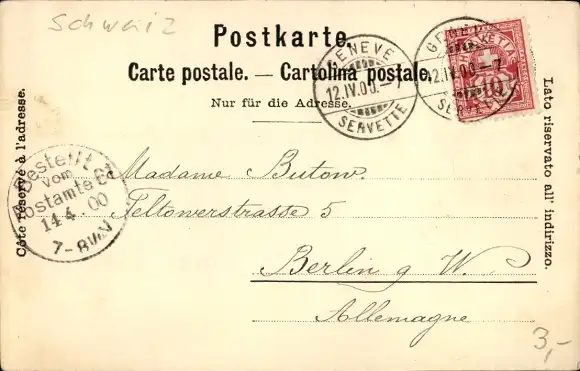 Schweiz
Postkarte.
Carte postale. — Cartolina postale.
Nur für die Adresse.
Côté réservé à l'adresse.
Lato riservato all' indirizzo.
GENÈVE
12.IV.00.–7
SERVETTE
GENÈVE
12.IV.00.–7
SERVETTE
10
Bestellt
vom
Postamte 9
14/4 00
7-8 V.
Madame Butow.
Feltowerstrasse 5
Berlin g W.
Allemagne
3,-